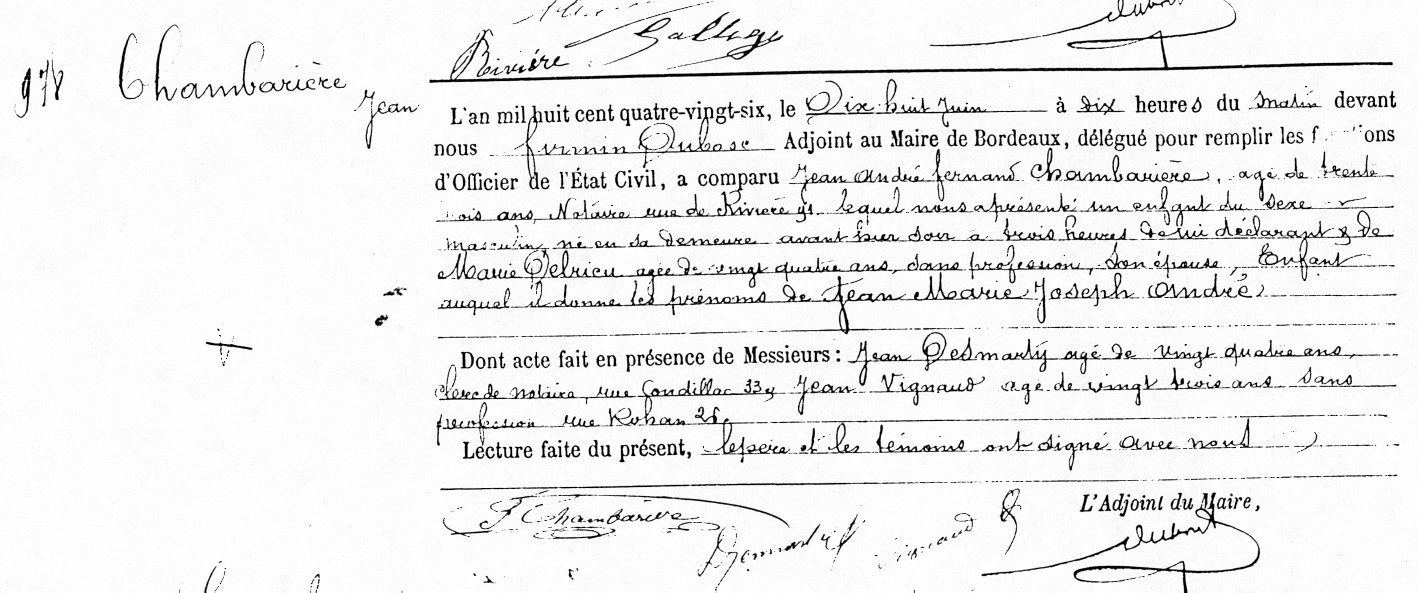 Gallego
Rivière
978 Chambarière
Jean
L'an mil huit cent quatre-vingt-six, le Dix huit Juin à dix heures du matin devant
nous firmin Dubosc Adjoint au Maire de Bordeaux, délégué pour remplir les f tions
d'Officier de l'État Civil, a comparu Jean André fernand Chambarière, agé de trente
ois ans, Notaire rue de Rivière lequel nous a présenté un enfant du sexe
masculin, né en sa demeure avant hier soir à trois heures de lui déclarant & de
Marie Delrieu agée de vingt quatre ans, sans profession, son épouse, Enfant
auquel il donne les prénoms de Jean Marie Joseph André
Dont acte fait en présence de Messieurs : Jean Desmarty agé de vingt quatre ans,
clerc de notaire, rue Condillac 33 & Jean Vignaud agé de vingt trois ans sans
profession rue Rohan 28
Lecture faite du présent, le père et les témoins ont signé avec nous
L'Adjoint du Maire,
F Chambarière